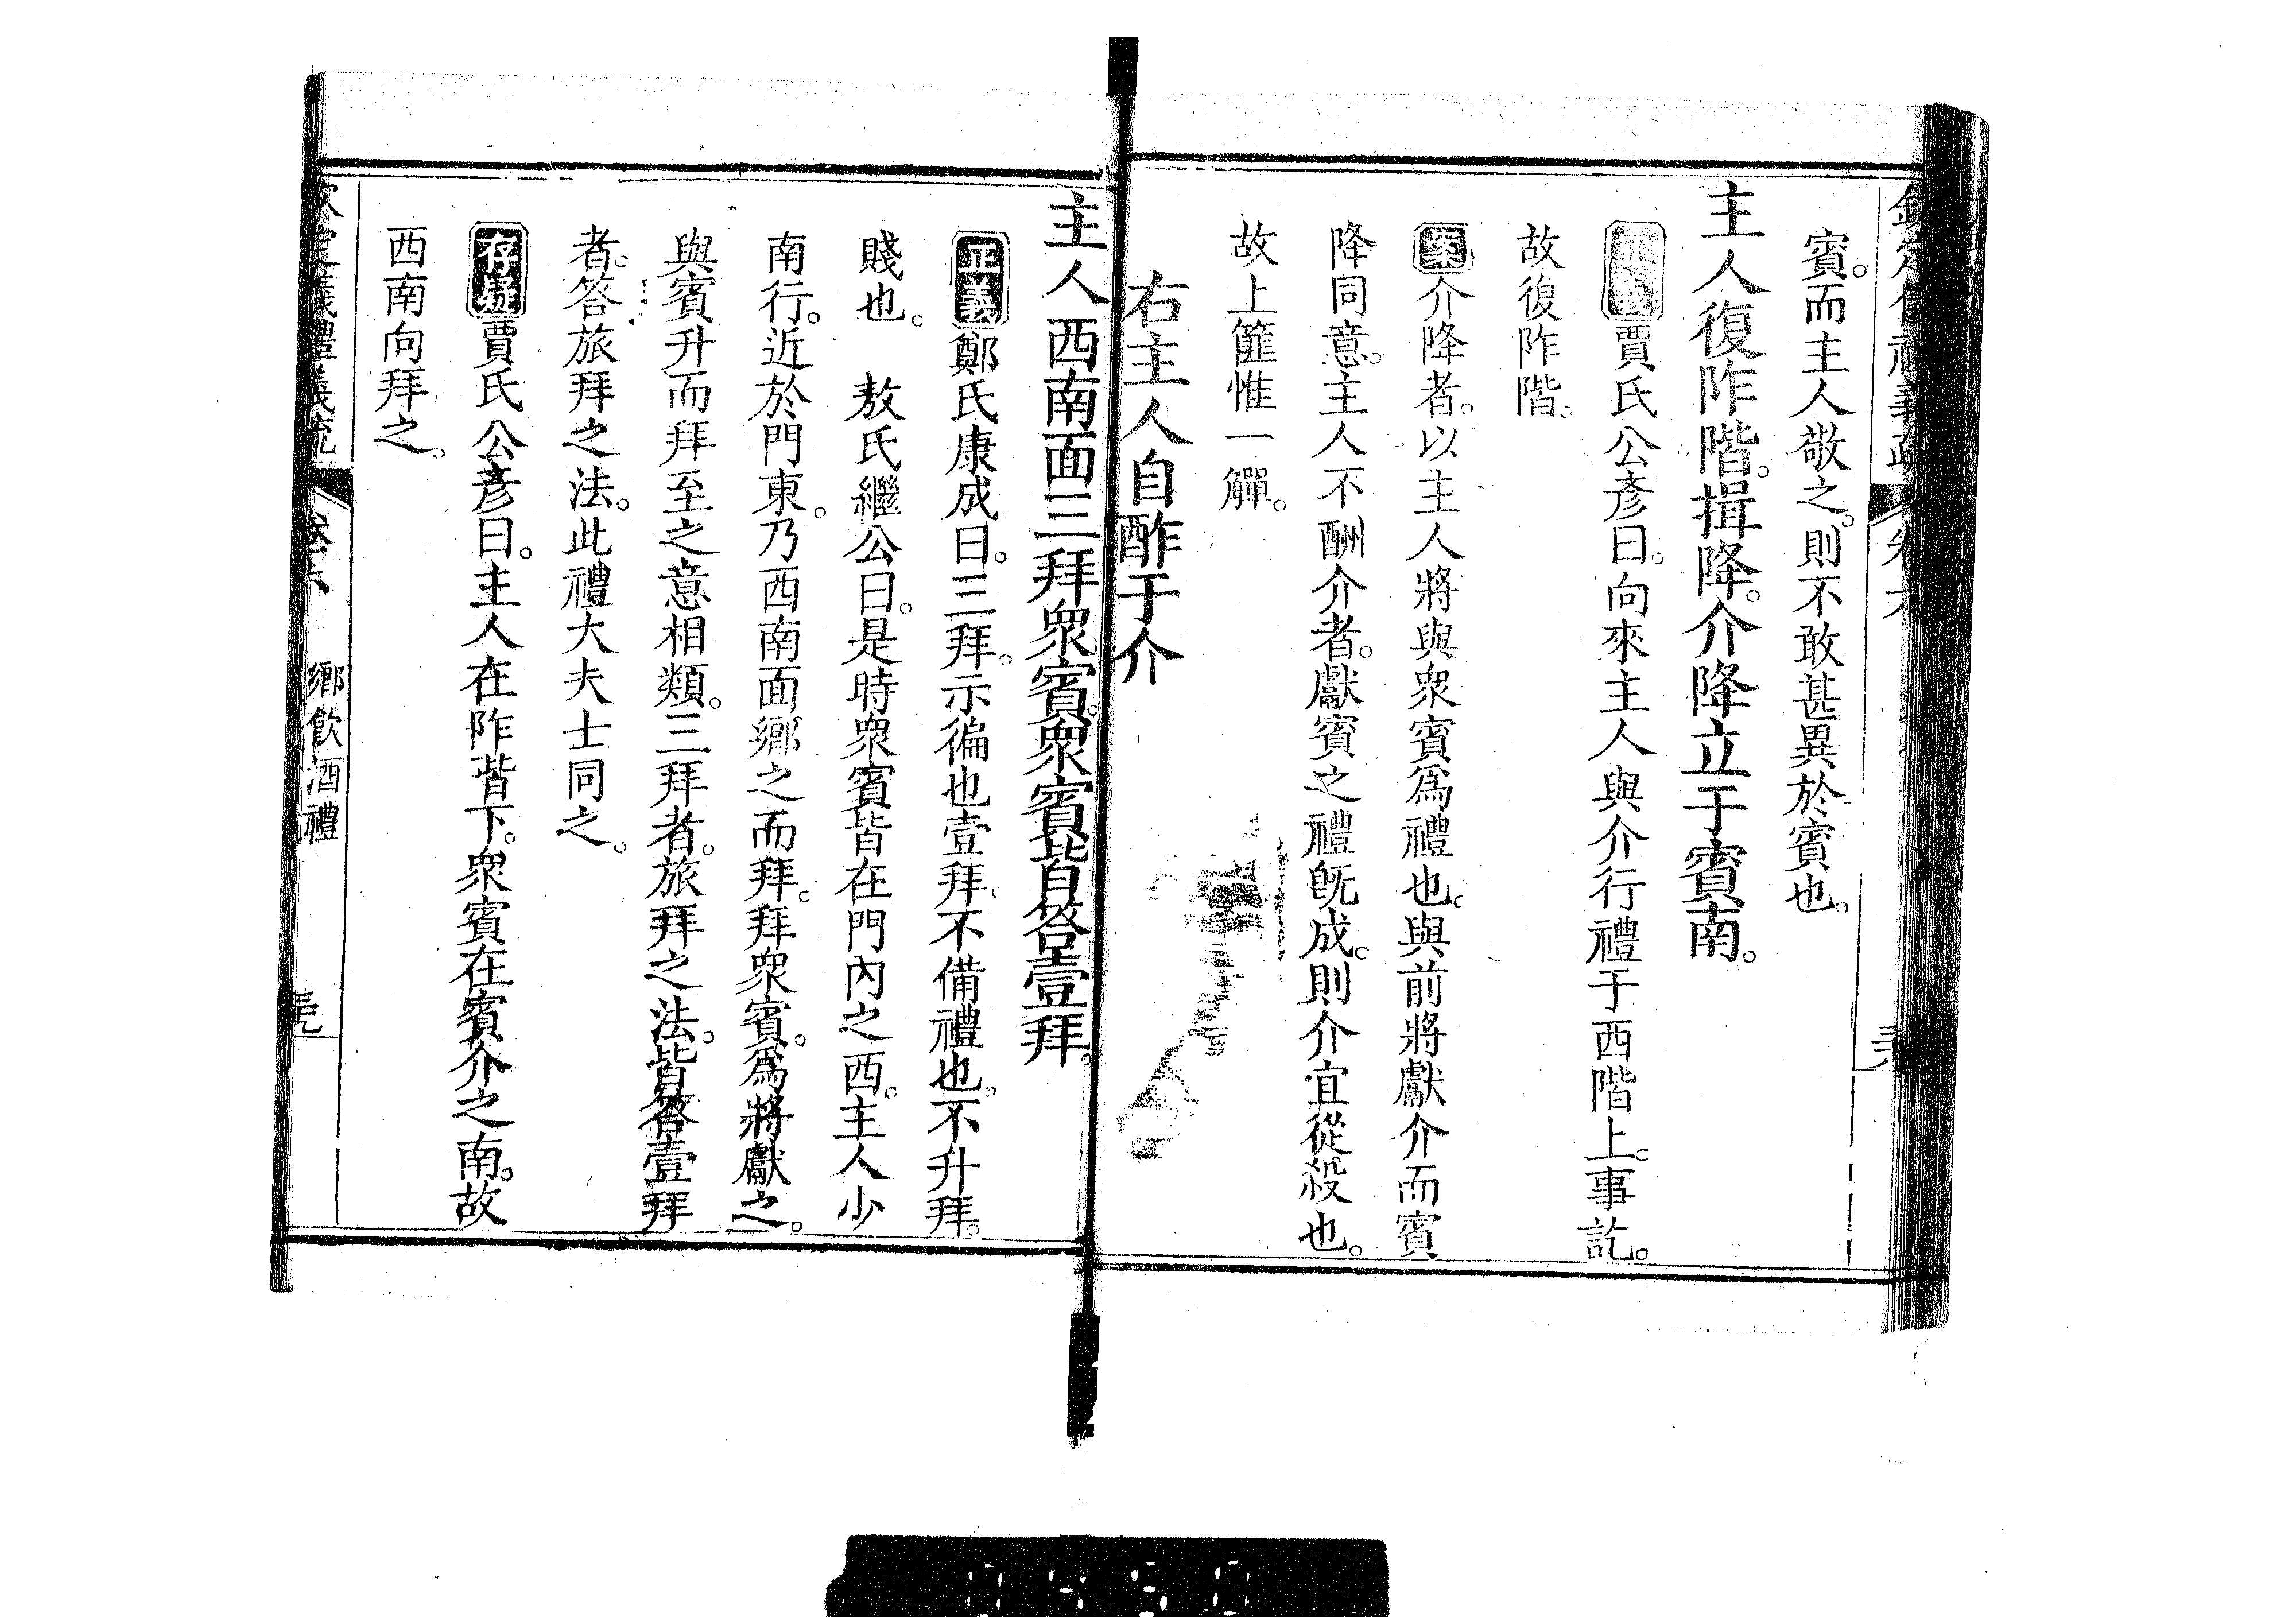 賓。而主人敬之。則不敢甚異於賓也。
主人復阼階。揖降。介降立于賓南。
正義賈氏公彥曰。向來主人與介行禮于西階上。事訖。
故復阼階。
案介降者。以主人將與衆賓爲禮也。與前將獻介而賓
降同意。主人不酬介者。獻賓之禮旣成。則介宜從殺也。
故上篚惟一觶。
右主人自酢于介
主人西南面三拜衆賓。衆賓皆答壹拜。
正義鄭氏康成曰。三拜。示徧也。壹拜。不備禮也。不升拜。
賤也。 敖氏繼公曰。是時衆賓皆在門內之西。主人少
南行。近於門東。乃西南面鄉之而拜。拜衆賓。爲將獻之。
與賓升而拜至之意相類。三拜者。旅拜之法。皆答壹拜
者。答旅拜之法。此禮大夫士同之。
存疑賈氏公彥曰。主人在阼階下。衆賓在賓介之南。故
西南向拜之。
欽定儀禮義疏 卷六 鄉飲酒禮